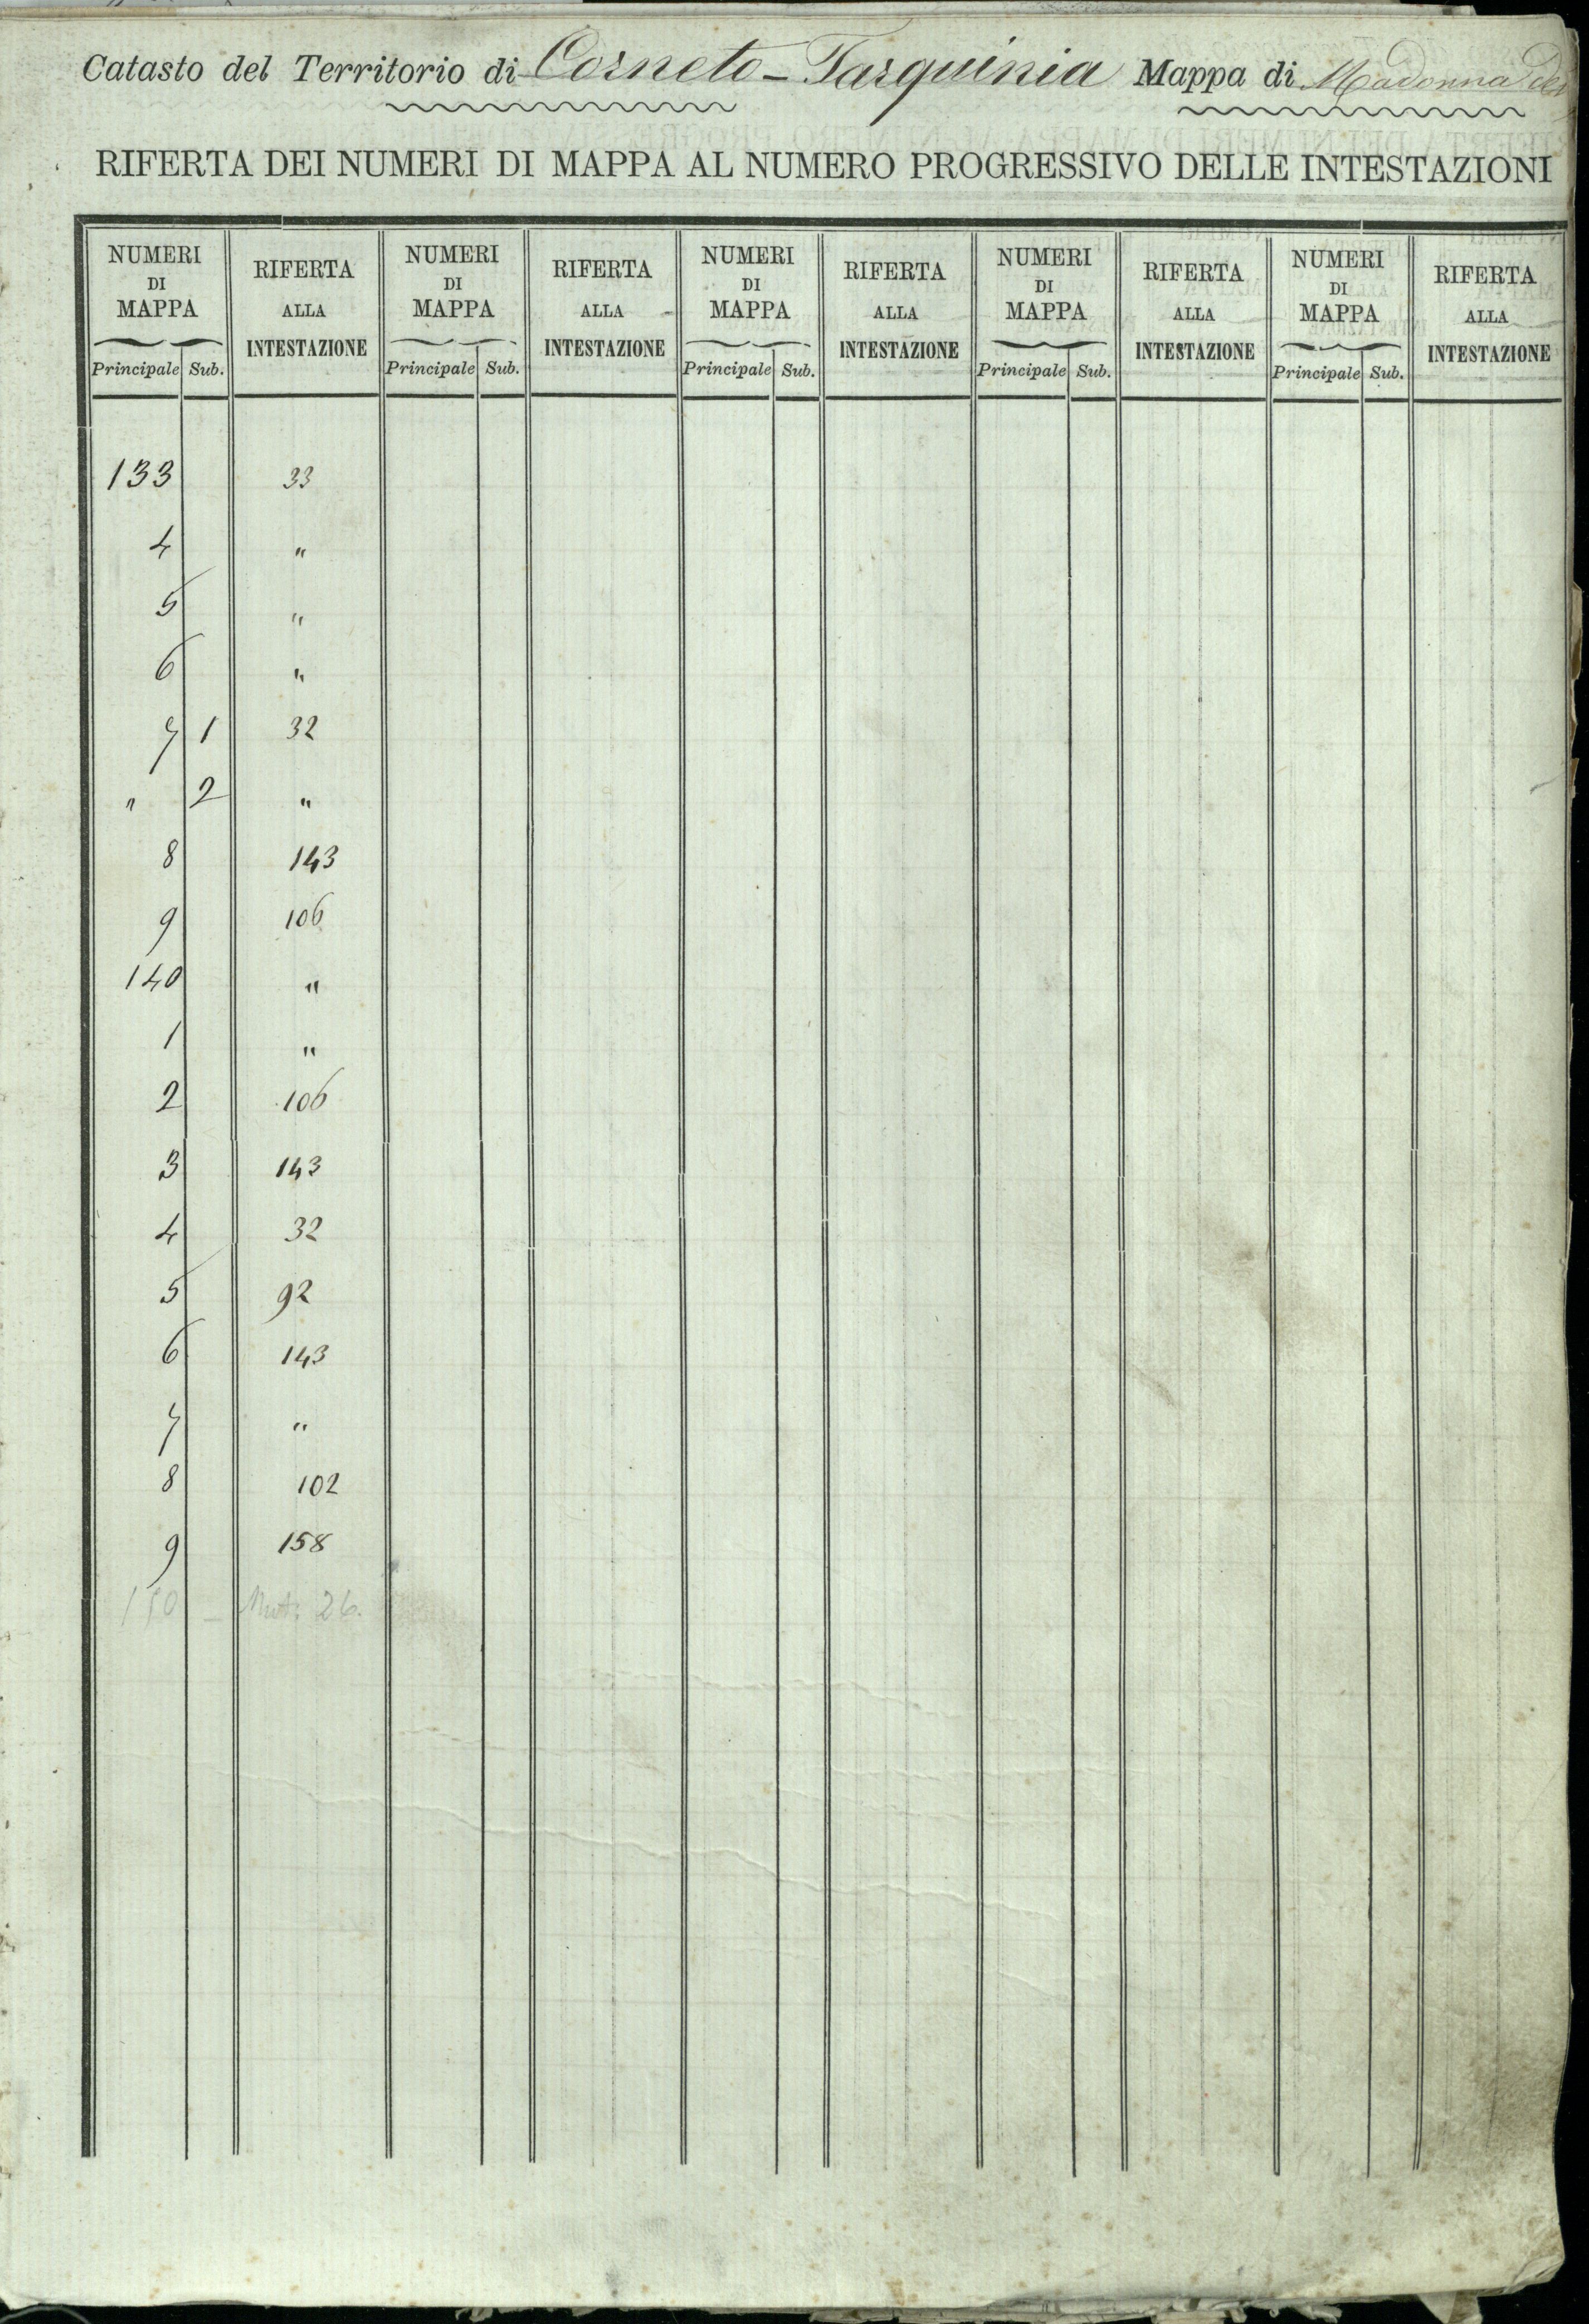 Catasto del Territorio di Corneto-Tarquinia Mappa di Madonna del
RIFERTA DEI NUMERI DI MAPPA AL NUMERO PROGRESSIVO DELLE INTESTAZIONI
NUMERI DI MAPPA RIFERTA ALLA INTESTAZIONE NUMERI DI MAPPA RIFERTA ALLA INTESTAZIONE NUMERI DI MAPPA RIFERTA ALLA INTESTAZIONE NUMERI DI MAPPA RIFERTA ALLA INTESTAZIONE NUMERI DI MAPPA RIFERTA ALLA INTESTAZIONE
Principale Sub. Principale Sub. Principale Sub. Principale Sub. Principale Sub.
133 33
4 "
5 "
6 "
7 1 32
" 2 "
8 143
9 106
140 "
1 "
2 106
3 143
4 32
5 92
6 143
7 "
8 102
9 158
150 - 26.